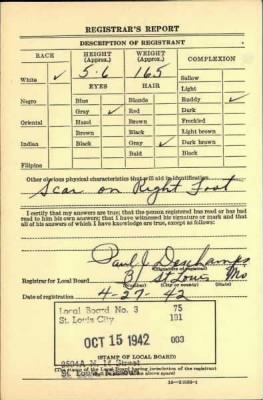 REGISTRAR'S REPORT
DESCRIPTION OF REGISTRANT
RACE HEIGHT (Approx.) WEIGHT (Approx.) COMPLEXION
White ✓ 5-6 165 Sallow
EYES HAIR Light
Negro Blue Blonde Ruddy ✓
Gray ✓ Red Dark
Oriental Hazel Brown Freckled
Brown Black Light brown
Indian Black Gray ✓ Dark brown
Bald Black
Filipino
Other obvious physical characteristics that will aid in identification
Scar on Right Foot
I certify that my answers are true; that the person registered has read or has had
read to him his own answers; that I have witnessed his signature or mark and that
all of his answers of which I have knowledge are true, except as follows:
Paul J. Deschamps
(Signature of registrar)
Registrar for Local Board 3 St Louis Mo
(Number) (City or county) (State)
Date of registration 4-27-42
Local Board No. 3 75
St. Louis City 191
OCT 15 1942 003
St. Louis, Missouri
(STAMP OF LOCAL BOARD)
(The stamp of the Local Board having jurisdiction of the registrant
shall be placed in the above space)